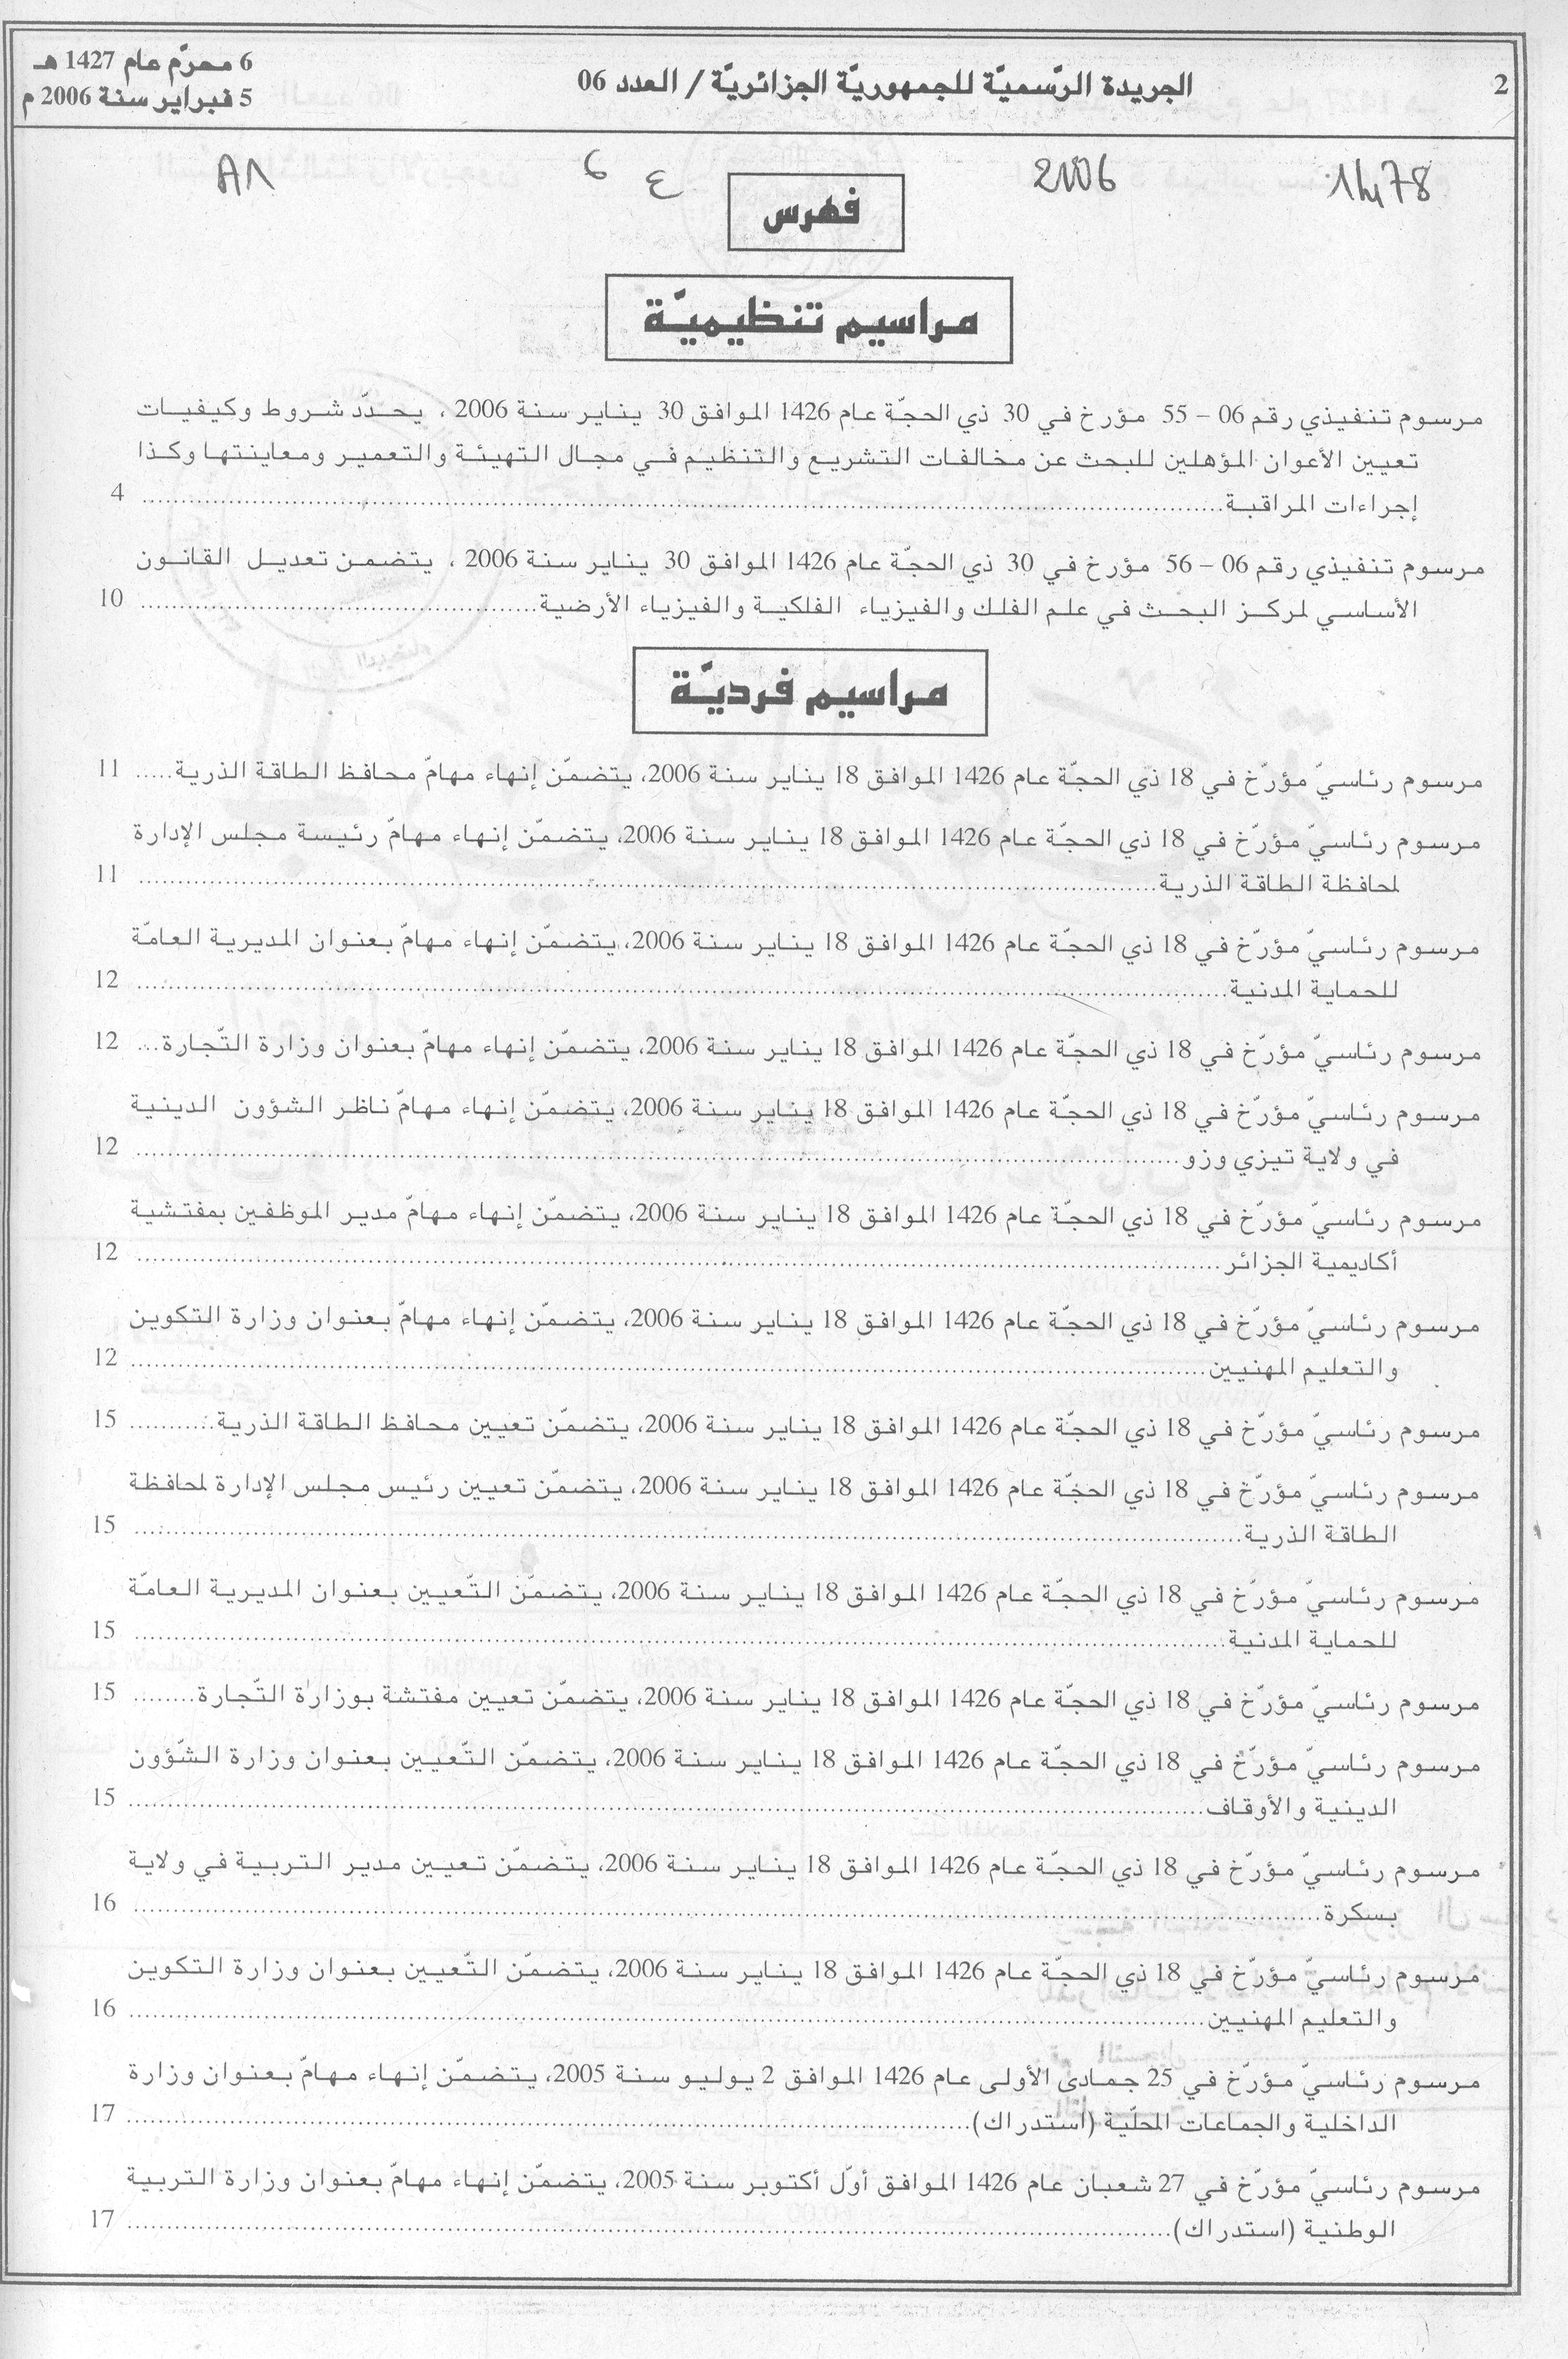 2
الجريدة الرّسميّة للجمهوريّة الجزائريّة / العدد 06
6 محرّم عام 1427 هـ
5 فبراير سنة 2006 م
2006
6
فهرس
مراسيم تنظيميّة
مرسوم تنفيذي رقم 06 – 55 مؤرخ في 30 ذي الحجّة عام 1426 الموافق 30 يناير سنة 2006 ، يحدّد شروط وكيفيات
تعيين الأعوان المؤهلين للبحث عن مخالفات التشريع والتنظيم في مجال التهيئة والتعمير ومعاينتها وكذا
إجراءات المراقبة........ 4
مرسوم تنفيذي رقم 06 – 56 مؤرخ في 30 ذي الحجّة عام 1426 الموافق 30 يناير سنة 2006 ، يتضمن تعديل القانون
الأساسي لمركز البحث في علم الفلك والفيزياء الفلكية والفيزياء الأرضية........ 10
مراسيم فرديّة
مرسوم رئاسيّ مؤرّخ في 18 ذي الحجّة عام 1426 الموافق 18 يناير سنة 2006، يتضمّن إنهاء مهامّ محافظ الطاقة الذرية..... 11
مرسوم رئاسيّ مؤرّخ في 18 ذي الحجّة عام 1426 الموافق 18 يناير سنة 2006، يتضمّن إنهاء مهامّ رئيسة مجلس الإدارة
لمحافظة الطاقة الذرية........ 11
مرسوم رئاسيّ مؤرّخ في 18 ذي الحجّة عام 1426 الموافق 18 يناير سنة 2006، يتضمّن إنهاء مهامّ بعنوان المديرية العامّة
للحماية المدنية........ 12
مرسوم رئاسيّ مؤرّخ في 18 ذي الحجّة عام 1426 الموافق 18 يناير سنة 2006، يتضمّن إنهاء مهامّ بعنوان وزارة التّجارة... 12
مرسوم رئاسيّ مؤرّخ في 18 ذي الحجّة عام 1426 الموافق 18 يناير سنة 2006، يتضمّن إنهاء مهامّ ناظر الشؤون الدينية
في ولاية تيزي وزو........ 12
مرسوم رئاسيّ مؤرّخ في 18 ذي الحجّة عام 1426 الموافق 18 يناير سنة 2006، يتضمّن إنهاء مهامّ مدير الموظفين بمفتشية
أكاديمية الجزائر........ 12
مرسوم رئاسيّ مؤرّخ في 18 ذي الحجّة عام 1426 الموافق 18 يناير سنة 2006، يتضمّن إنهاء مهامّ بعنوان وزارة التكوين
والتعليم المهنيين........ 12
مرسوم رئاسيّ مؤرّخ في 18 ذي الحجّة عام 1426 الموافق 18 يناير سنة 2006، يتضمّن تعيين محافظ الطاقة الذرية........ 15
مرسوم رئاسيّ مؤرّخ في 18 ذي الحجّة عام 1426 الموافق 18 يناير سنة 2006، يتضمّن تعيين رئيس مجلس الإدارة لمحافظة
الطاقة الذرية........ 15
مرسوم رئاسيّ مؤرّخ في 18 ذي الحجّة عام 1426 الموافق 18 يناير سنة 2006، يتضمّن التّعيين بعنوان المديرية العامّة
للحماية المدنية........ 15
مرسوم رئاسيّ مؤرّخ في 18 ذي الحجّة عام 1426 الموافق 18 يناير سنة 2006، يتضمّن تعيين مفتشة بوزارة التّجارة........ 15
مرسوم رئاسيّ مؤرّخ في 18 ذي الحجّة عام 1426 الموافق 18 يناير سنة 2006، يتضمّن التّعيين بعنوان وزارة الشّؤون
الدينية والأوقاف........ 15
مرسوم رئاسيّ مؤرّخ في 18 ذي الحجّة عام 1426 الموافق 18 يناير سنة 2006، يتضمّن تعيين مدير التربية في ولاية
بسكرة........ 16
مرسوم رئاسيّ مؤرّخ في 18 ذي الحجّة عام 1426 الموافق 18 يناير سنة 2006، يتضمّن التّعيين بعنوان وزارة التكوين
والتعليم المهنيين........ 16
مرسوم رئاسيّ مؤرّخ في 25 جمادى الأولى عام 1426 الموافق 2 يوليو سنة 2005، يتضمّن إنهاء مهامّ بعنوان وزارة
الداخلية والجماعات المحلّية (استدراك)........ 17
مرسوم رئاسيّ مؤرّخ في 27 شعبان عام 1426 الموافق أوّل أكتوبر سنة 2005، يتضمّن إنهاء مهامّ بعنوان وزارة التربية
الوطنية (استدراك)........ 17